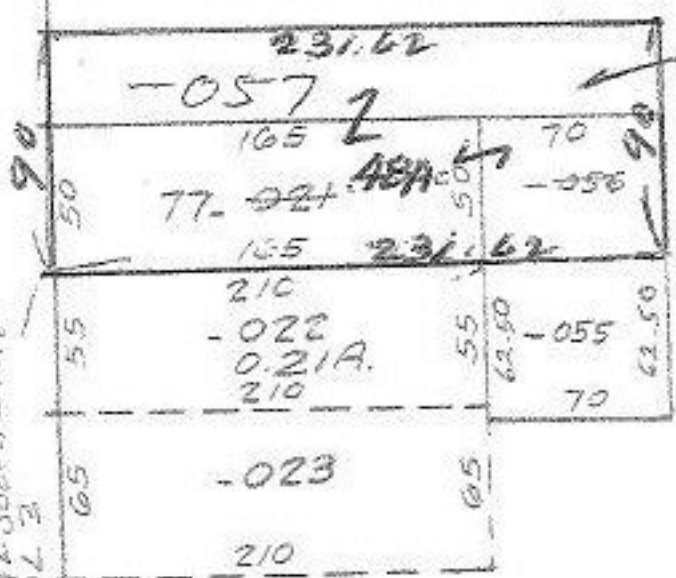 231.62
-057
1
90
165
70
90
50
77- 021
.48A
50
-056
165
231.62
210
55
-022
55
62.50
-055
62.50
0.21A.
210
70
65
-023
65
210